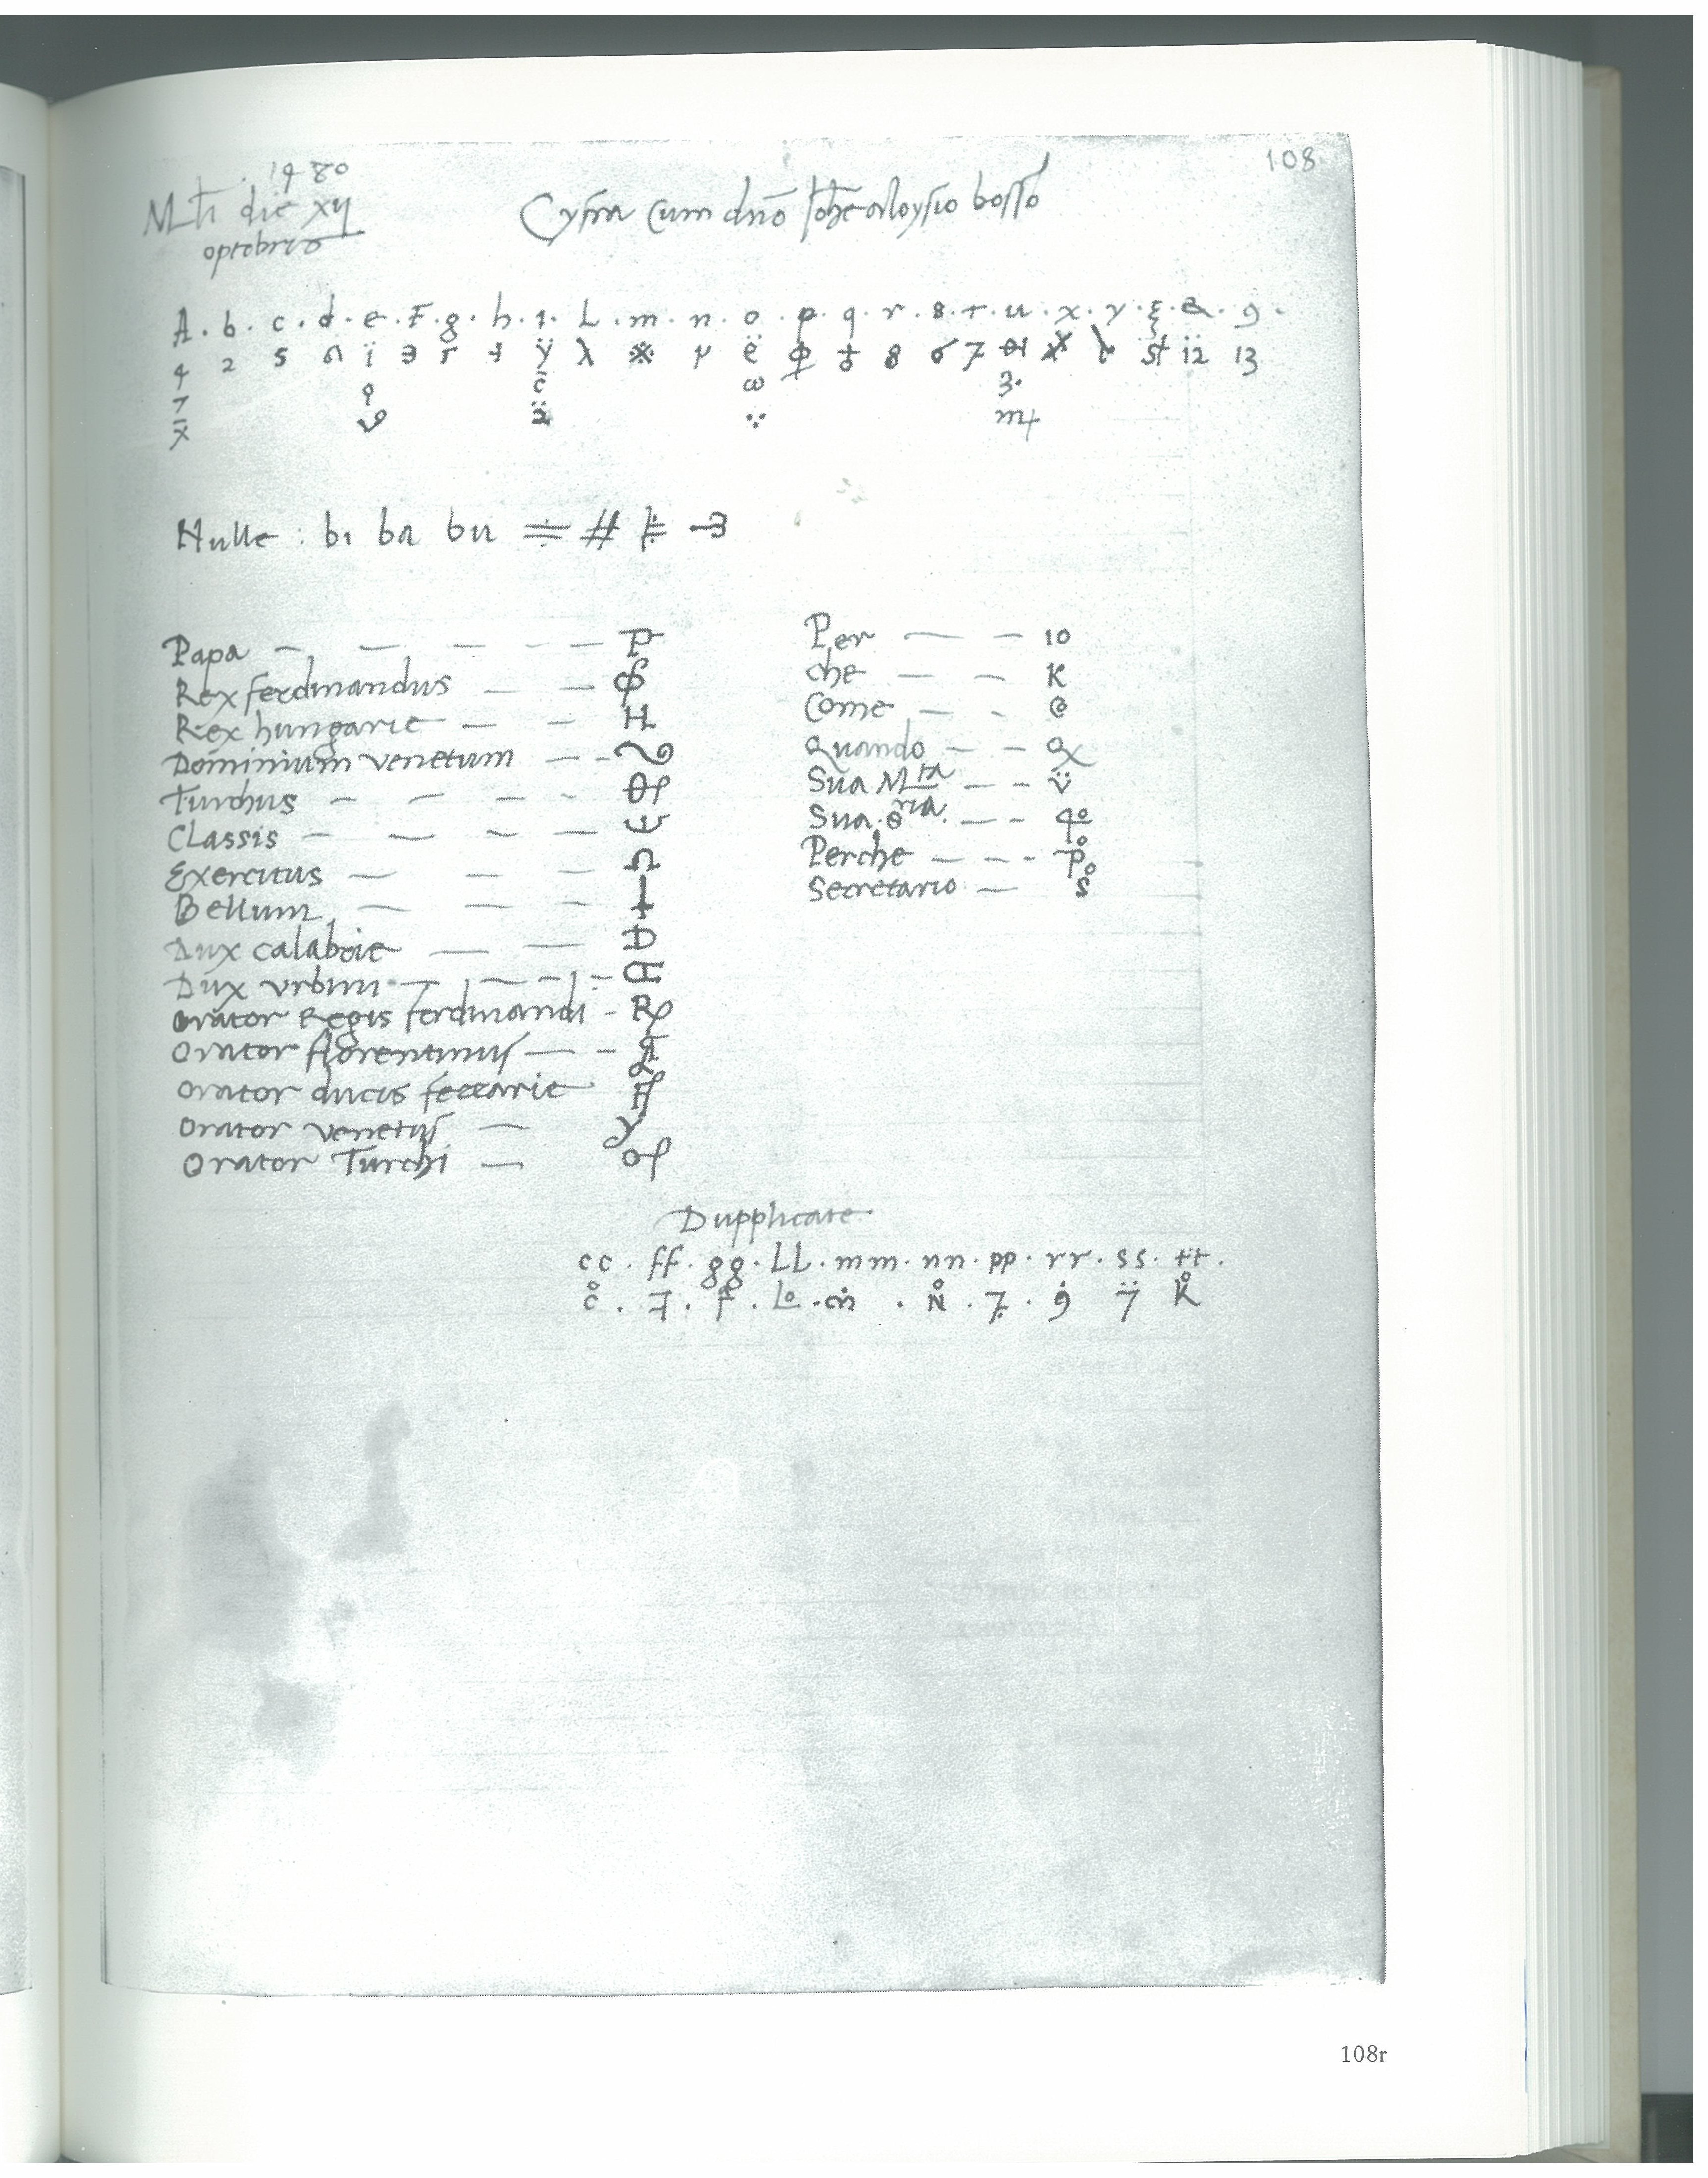 108
1480
Mli die xij
optobris
Cyfra cum dño Johe aloysio bosso
A . b . c . d . e . F . g . h . ı . L . m . n . o . p . q . r . s . t . u . x . y . ξ . & . 9 .
4 2 5 ï 9 r ÿ λ ※ ë 8 6 7 st ï2 13
7 9 c̄ ω 3.
x̄ 2̈ ∵ m
Nulle : bı ba bu ≑ #
Papa — — — — — P
Rex ferdinandus — —
Rex hungarie — — H
Dominium venetum — -
Turchus — — — -
Classis — — — —
Exercitus — — — Ω
Bellum — — — †
Dux calabrie — — D
Dux urbini — — — -
Orator Regis ferdinandi -
Orator florentinus — -
Orator ducis ferrarie —
Orator venetus — y
Orator Turchi —
Per — — 10
che — — K
Come — - @
Quando — —
Sua M^ta — - v̈
Sua S^ria — - 4º
Perche — - -
Secretario — S
Dupplicate
cc . ff . gg . LL . mm . nn . pp . rr . ss . tt .
c̊ . . . Lo . ṁ . N̊ . 7 . 9̇ 7̈ K̊
108r